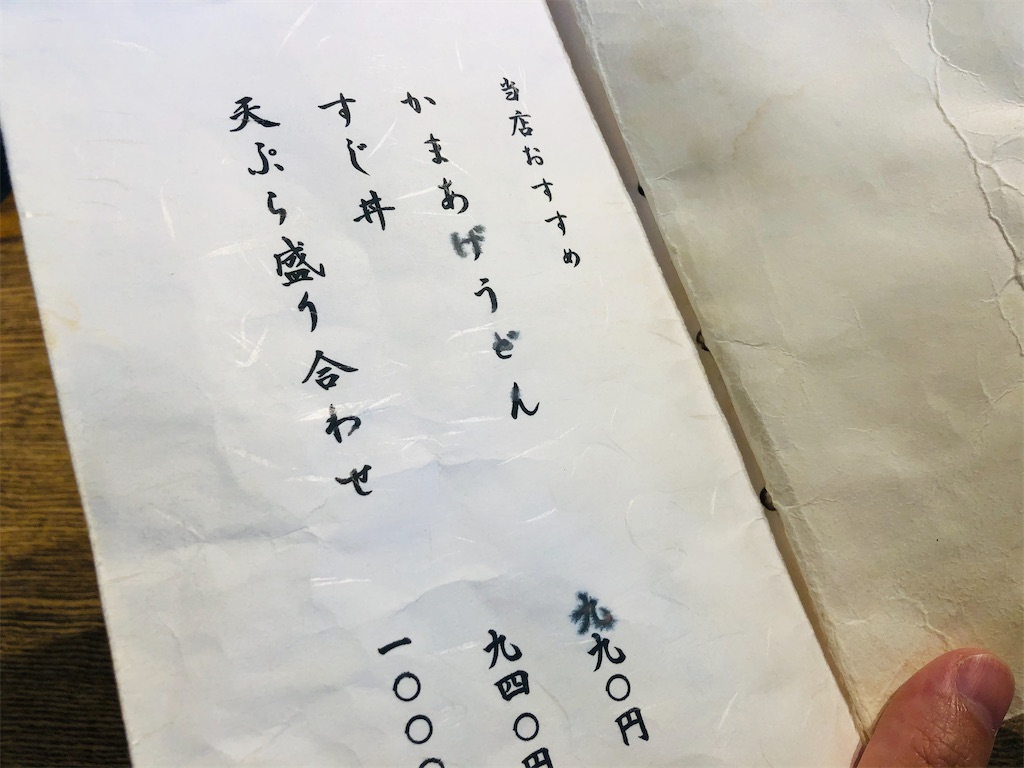 当店おすすめ
かまあげうどん
九九〇円
すじ丼
九四〇円
天ぷら盛り合わせ
一〇〇〇